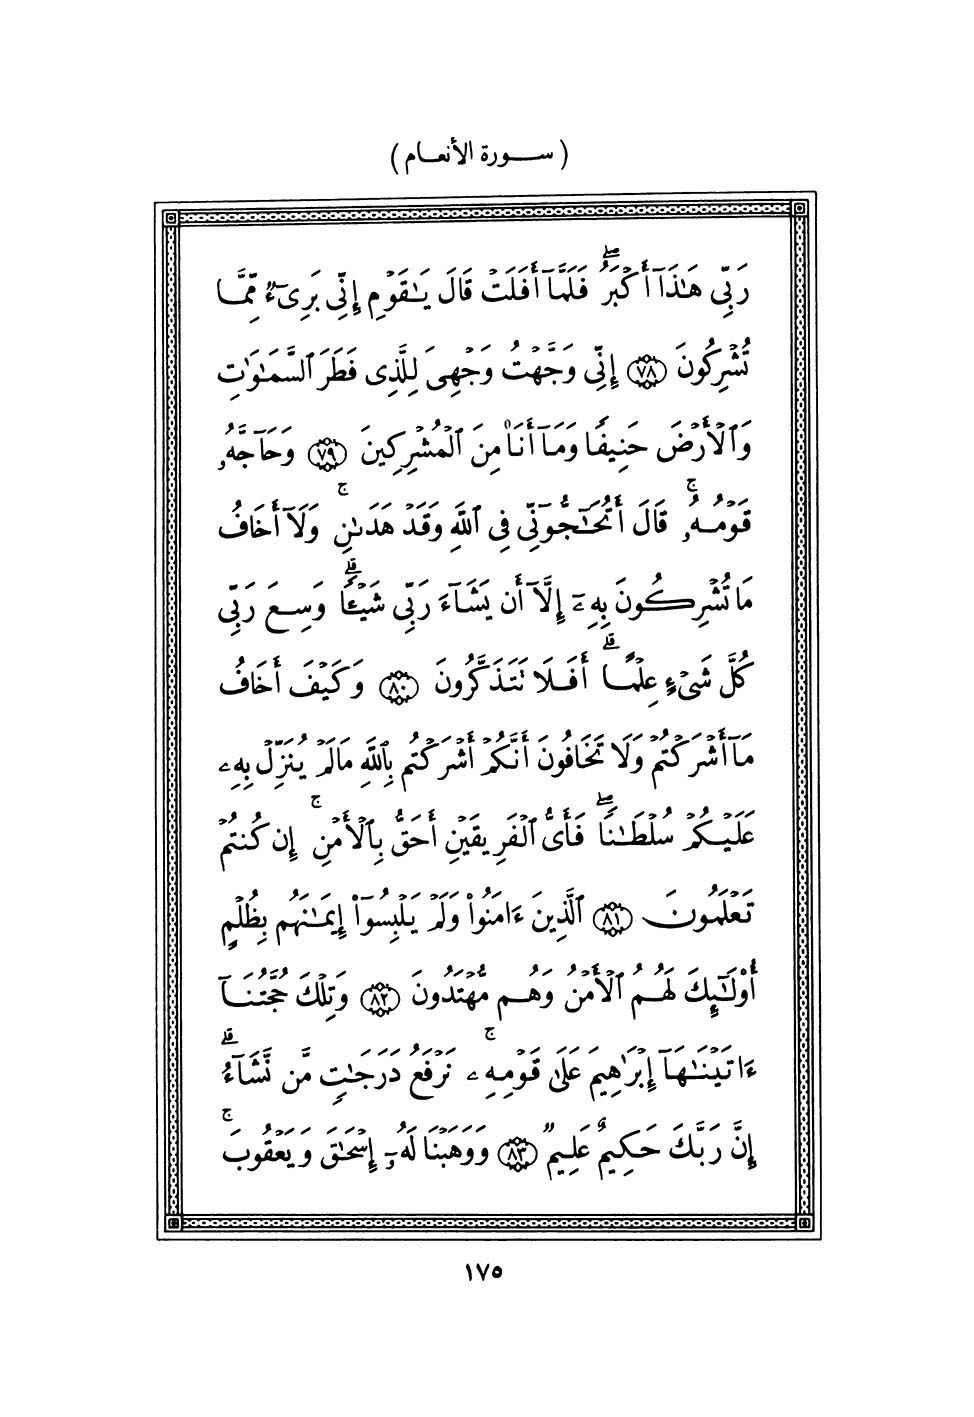 ( سورة الأنعام )
رَبِّى هَـٰذَآ أَكْبَرُ ۖ فَلَمَّآ أَفَلَتْ قَالَ يَـٰقَوْمِ إِنِّى بَرِىٓءٌ مِّمَّا
تُشْرِكُونَ ٧٨ إِنِّى وَجَّهْتُ وَجْهِىَ لِلَّذِى فَطَرَ ٱلسَّمَـٰوَٰتِ
وَٱلْأَرْضَ حَنِيفًا وَمَآ أَنَا۠ مِنَ ٱلْمُشْرِكِينَ ٧٩ وَحَآجَّهُۥ
قَوْمُهُۥ ۚ قَالَ أَتُحَـٰٓجُّوٓنِّى فِى ٱللَّهِ وَقَدْ هَدَىٰنِ ۚ وَلَآ أَخَافُ
مَا تُشْرِكُونَ بِهِۦٓ إِلَّآ أَن يَشَآءَ رَبِّى شَيْـًٔا ۗ وَسِعَ رَبِّى
كُلَّ شَىْءٍ عِلْمًا ۗ أَفَلَا تَتَذَكَّرُونَ ٨٠ وَكَيْفَ أَخَافُ
مَآ أَشْرَكْتُمْ وَلَا تَخَافُونَ أَنَّكُمْ أَشْرَكْتُم بِٱللَّهِ مَا لَمْ يُنَزِّلْ بِهِۦ
عَلَيْكُمْ سُلْطَـٰنًا ۖ فَأَىُّ ٱلْفَرِيقَيْنِ أَحَقُّ بِٱلْأَمْنِ ۚ إِن كُنتُمْ
تَعْلَمُونَ ٨١ ٱلَّذِينَ ءَامَنُوا۟ وَلَمْ يَلْبِسُوٓا۟ إِيمَـٰنَهُم بِظُلْمٍ
أُو۟لَـٰٓئِكَ لَهُمُ ٱلْأَمْنُ وَهُم مُّهْتَدُونَ ٨٢ وَتِلْكَ حُجَّتُنَآ
ءَاتَيْنَـٰهَآ إِبْرَٰهِيمَ عَلَىٰ قَوْمِهِۦ ۚ نَرْفَعُ دَرَجَـٰتٍ مَّن نَّشَآءُ ۗ
إِنَّ رَبَّكَ حَكِيمٌ عَلِيمٌ ٨٣ وَوَهَبْنَا لَهُۥٓ إِسْحَـٰقَ وَيَعْقُوبَ ۚ
١٧٥